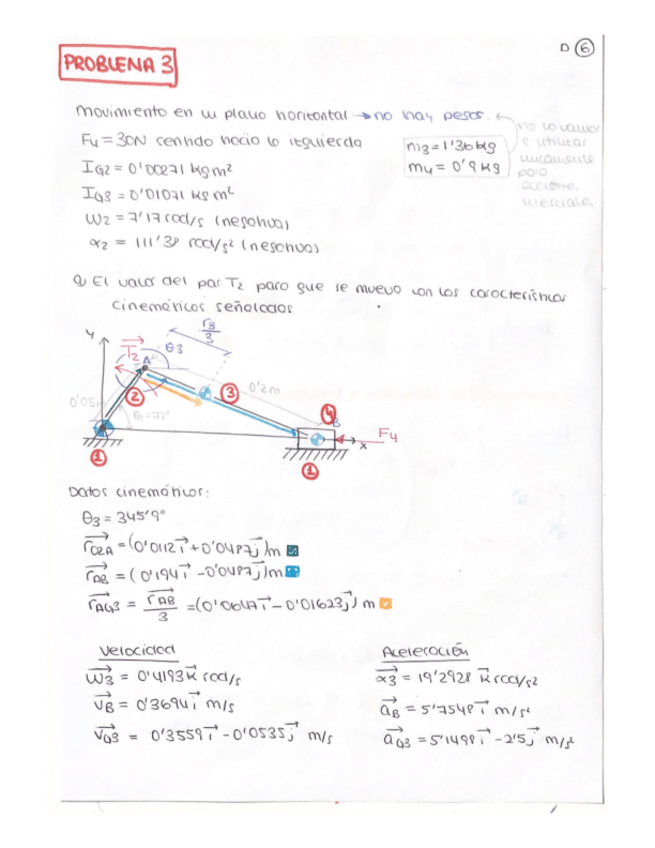 D 6
PROBLEMA 3
Movimiento en un plano horizontal → no hay pesos.
no lo vamos a utilizar unicamente para acciones inerciales
F4 = 30N sentido hacia la izquierda
m3 = 1'36 kg
m4 = 0'9 kg
IG2 = 0'00271 kg m²
IG3 = 0'01071 kg m²
ω2 = 7'17 rad/s (negativa)
α2 = 111'38 rad/s² (negativa)
a) El valor del par T2 para que se mueva con las características
cinemáticas señaladas
y
T2
θ3
r3/3
A
3
0'2m
2
0'05m
4
B
F4
x
1
1
Datos cinemáticos:
θ3 = 345'9°
rO2A = (0'0112 i + 0'0487 j) m
rAB = (0'194 i - 0'0487 j) m
rAG3 = rAB/3 = (0'0647 i - 0'01623 j) m
Velocidad
Aceleración
ω3 = 0'4193 k rad/s
α3 = 19'2928 k rad/s²
vB = 0'3694 i m/s
aB = 5'7548 i m/s²
vG3 = 0'3559 i - 0'0535 j m/s
aG3 = 5'1498 i - 2'5 j m/s²